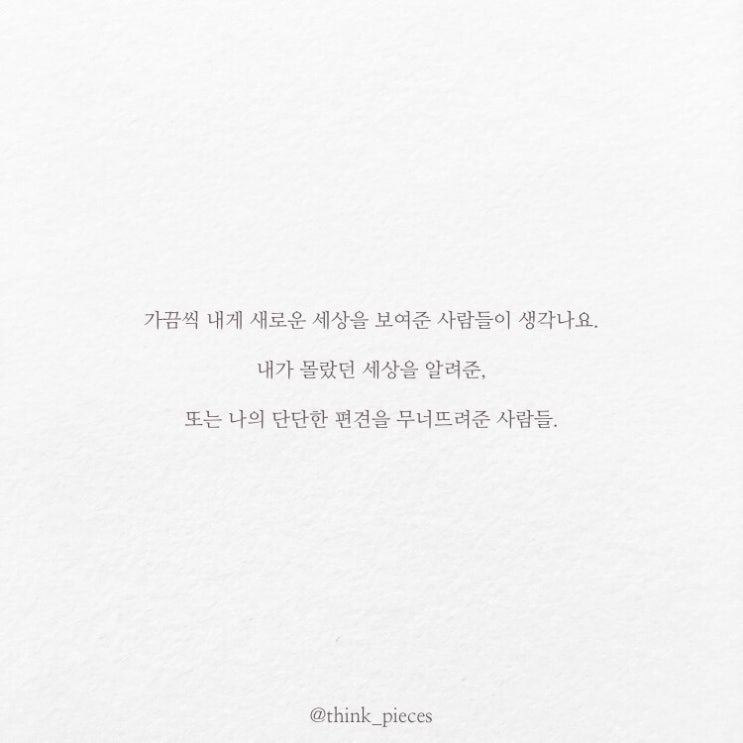 가끔씩 내게 새로운 세상을 보여준 사람들이 생각나요.
내가 몰랐던 세상을 알려준,
또는 나의 단단한 편견을 무너뜨려준 사람들.
@think_pieces